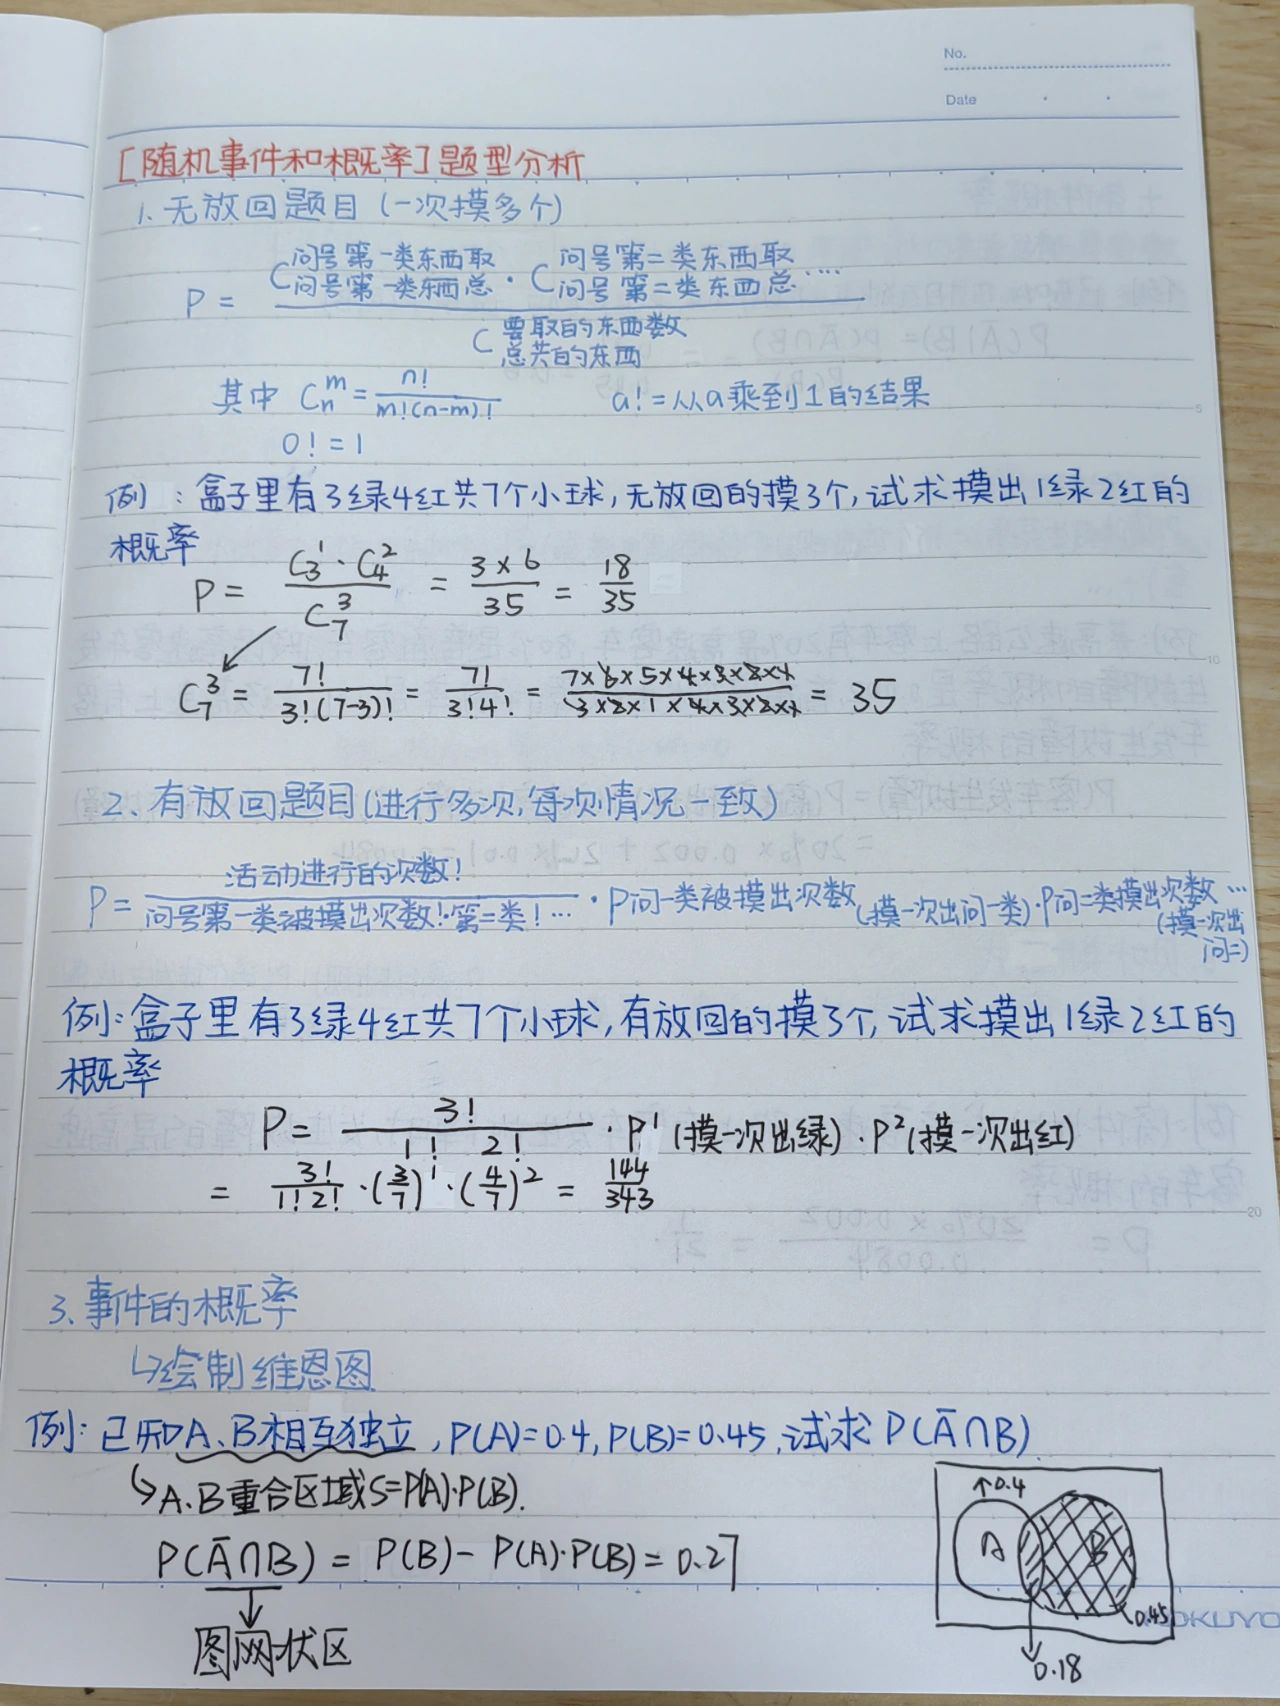 No.
Date
[随机事件和概率]题型分析
1、无放回题目(一次摸多个)
P = C问号第一类东西取 问号第一类东西总 · C问号第二类东西取 问号第二类东西总 ···· / C要取的东西数 总共的东西
其中 Cₙᵐ = n! / m!(n-m)!  a! = 从a乘到1的结果
0! = 1
例: 盒子里有3绿4红共7个小球,无放回的摸3个,试求摸出1绿2红的
概率
P = C₃¹·C₄² / C₇³ = 3×6 / 35 = 18/35
C₇³ = 7! / 3!(7-3)! = 7! / 3!4! = 7×6×5×4×3×2×1 / 3×2×1×4×3×2×1 = 35
2、有放回题目(进行多次,每次情况一致)
P = 活动进行的次数! / 问号第一类被摸出次数!·第二类!··· · P问一类被摸出次数(摸一次出问一类)·P问二类摸出次数(摸一次出问二)···
例:盒子里有3绿4红共7个小球,有放回的摸3个,试求摸出1绿2红的
概率
P = 3! / 1! 2! · P¹(摸一次出绿)·P²(摸一次出红)
= 3! / 1!2! ·(3/7)¹·(4/7)² = 144/343
3、事件的概率
↳绘制维恩图
例:已知A、B相互独立,P(A)=0.4,P(B)=0.45,试求P(A̅∩B)
↳A、B重合区域S=P(A)·P(B).
P(A̅∩B) = P(B) - P(A)·P(B) = 0.27
图网状区
↑0.4
A
B
0.45
0.18
5
10
20
KOKUYO